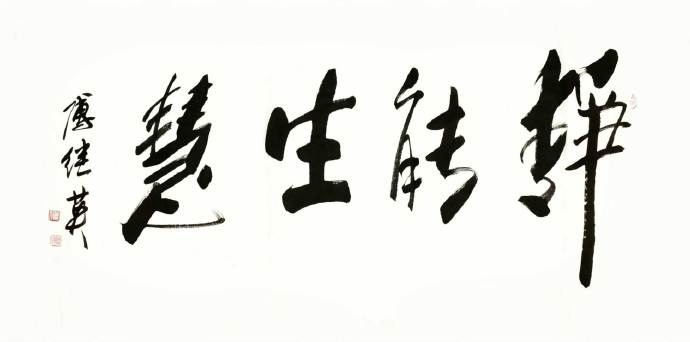 静能生慧
傅继英